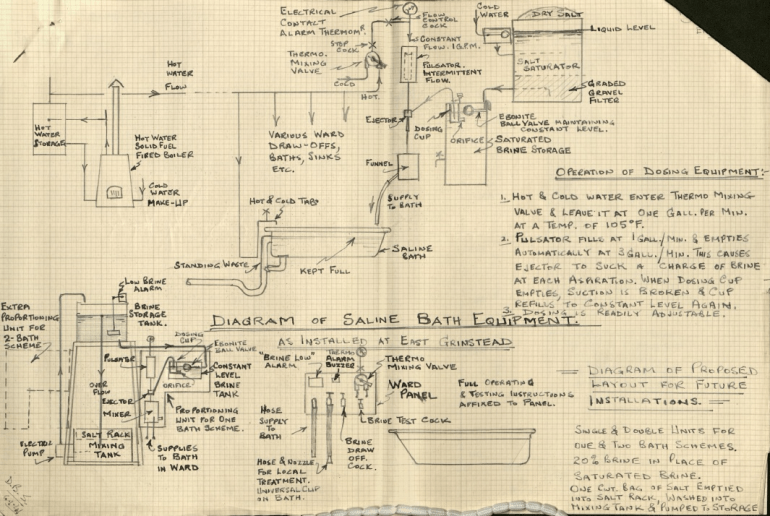 ELECTRICAL
CONTACT
ALARM THERMOMR.
FLOW
CONTROL
COCK
COLD
WATER
DRY SALT
LIQUID LEVEL
STOP
COCK
THERMO.
MIXING
VALVE
CONSTANT
FLOW. 1 G.P.M.
PULSATOR.
INTERMITTENT
FLOW.
SALT
SATURATOR
GRADED
GRAVEL
FILTER
HOT
WATER
FLOW
COLD
HOT.
EJECTOR
DOSING
CUP
ORIFICE
EBONITE
BALL VALVE MAINTAINING
CONSTANT LEVEL.
SATURATED
BRINE STORAGE
HOT
WATER
STORAGE
HOT WATER
SOLID FUEL
FIRED BOILER
COLD
WATER
MAKE-UP
VARIOUS WARD
DRAW-OFFS,
BATHS, SINKS
ETC.
FUNNEL
SUPPLY
TO BATH
HOT & COLD TAPS
STANDING WASTE
KEPT FULL
SALINE
BATH
OPERATION OF DOSING EQUIPMENT:-
1. HOT & COLD WATER ENTER THERMO MIXING
VALVE & LEAVE IT AT ONE GALL. PER MIN.
AT A TEMP. OF 105°F.
2. PULSATOR FILLS AT 1 GALL/MIN. & EMPTIES
AUTOMATICALLY AT 3 GALL./MIN. THIS CAUSES
EJECTOR TO SUCK A CHARGE OF BRINE
AT EACH ASPIRATION. WHEN DOSING CUP
EMPTIES, SUCTION IS BROKEN & CUP
REFILLS TO CONSTANT LEVEL AGAIN.
3. DOSING IS READILY ADJUSTABLE.
DIAGRAM OF SALINE BATH EQUIPMENT.
AS INSTALLED AT EAST GRINSTEAD
EXTRA
PROPORTIONING
UNIT FOR
2-BATH
SCHEME
LOW BRINE
ALARM
BRINE
STORAGE
TANK.
DOSING
CUP
EBONITE
BALL VALVE
PULSATOR
CONSTANT
LEVEL
BRINE
TANK
ORIFICE
OVER
FLOW
EJECTOR
MIXER
PROPORTIONING
UNIT FOR ONE
BATH SCHEME.
SALT RACK
MIXING
TANK
ELECTRIC
PUMP
SUPPLIES
TO BATH
IN WARD
"BRINE LOW"
ALARM
THERMO
ALARM
BUZZER
THERMO
MIXING VALVE
WARD
PANEL
HOSE
SUPPLY
TO
BATH
BRINE TEST COCK
HOSE & NOZZLE
FOR LOCAL
TREATMENT.
UNIVERSAL CLIP
ON BATH.
BRINE
DRAW
OFF
COCK.
FULL OPERATING
& TESTING INSTRUCTIONS
AFFIXED TO PANEL.
DIAGRAM OF PROPOSED
LAYOUT FOR FUTURE
INSTALLATIONS.
SINGLE & DOUBLE UNITS FOR
ONE & TWO BATH SCHEMES.
20% BRINE IN PLACE OF
SATURATED BRINE.
ONE CWT. BAG OF SALT EMPTIED
INTO SALT RACK, WASHED INTO
MIXING TANK & PUMPED TO STORAGE